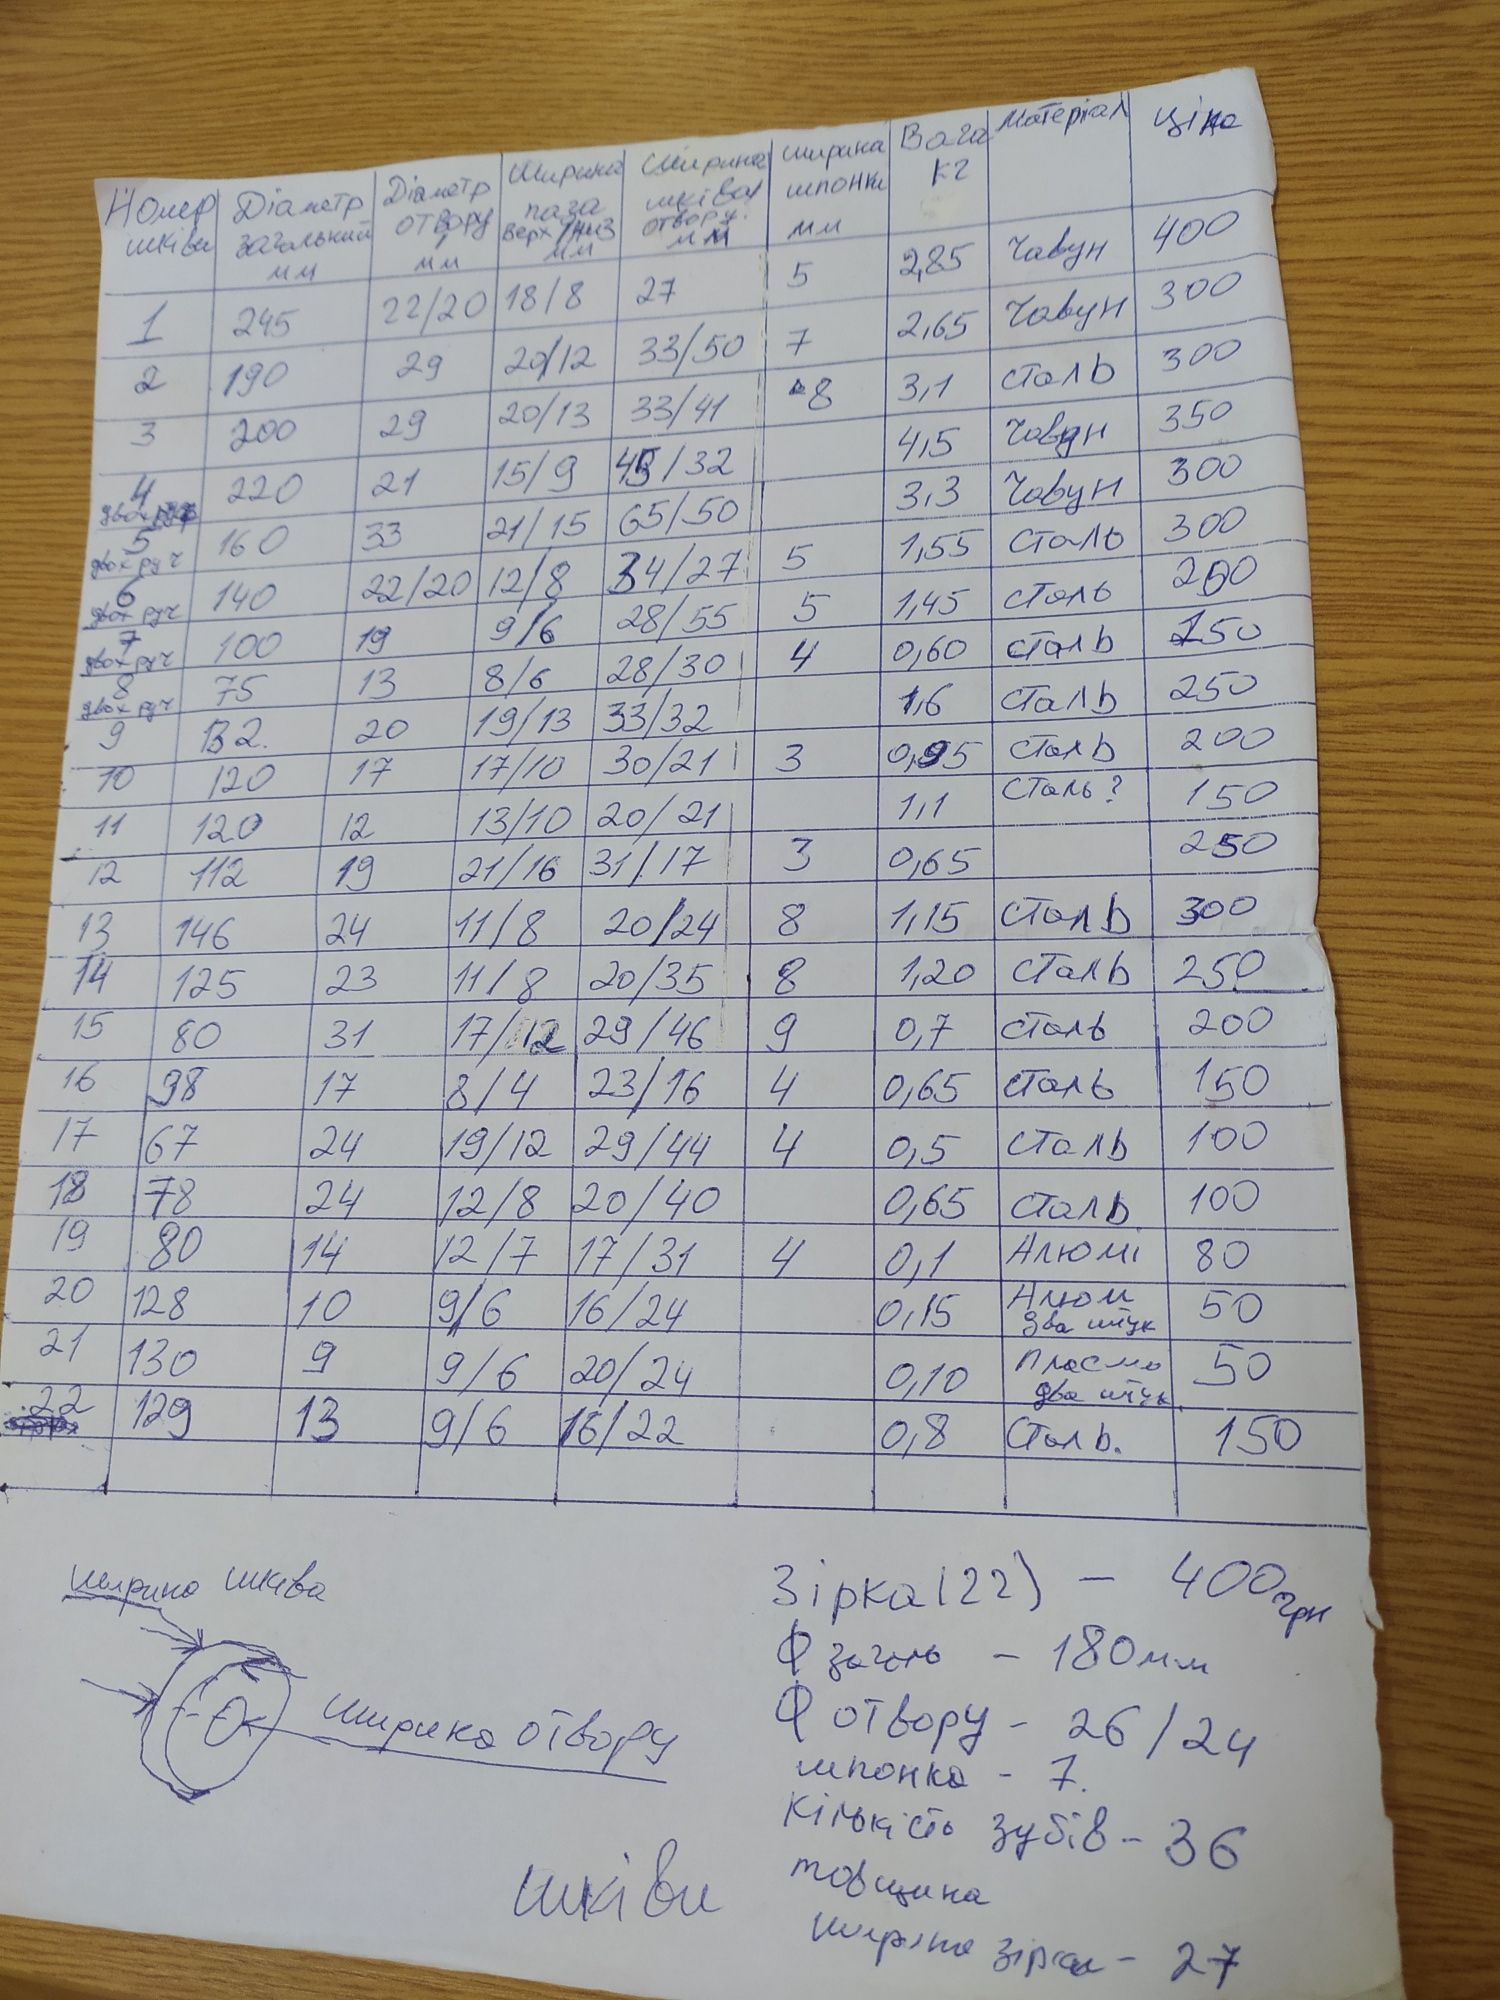 Номер шківи | Діаметр загальний мм | Діаметр отвору мм | Ширина паза верх/низ мм | Ширина шківа/отвору. мм | ширина шпонки мм | Вага кг | Матеріал | Ціна
1 | 245 | 22/20 | 18/8 | 27 | 5 | 2,85 | Чавун | 400
2 | 190 | 29 | 20/12 | 33/50 | 7 | 2,65 | Чавун | 300
3 | 200 | 29 | 20/13 | 33/41 | 8 | 3,1 | сталь | 300
4 двохруч | 220 | 21 | 15/9 | 45/32 | | 4,5 | Чавун | 350
5 двохруч | 160 | 33 | 21/15 | 65/50 | | 3,3 | Чавун | 300
6 двохруч | 140 | 22/20 | 12/8 | 34/27 | 5 | 1,55 | сталь | 300
7 двохруч | 100 | 19 | 9/6 | 28/55 | 5 | 1,45 | сталь | 250
8 двохруч | 75 | 13 | 8/6 | 28/30 | 4 | 0,60 | сталь | 150
9 | 132. | 20 | 19/13 | 33/32 | | 1,6 | сталь | 250
10 | 120 | 17 | 17/10 | 30/21 | 3 | 0,95 | сталь | 200
11 | 120 | 12 | 13/10 | 20/21 | | 1,1 | сталь? | 150
12 | 112 | 19 | 21/16 | 31/17 | 3 | 0,65 | | 250
13 | 146 | 24 | 11/8 | 20/24 | 8 | 1,15 | сталь | 300
14 | 125 | 23 | 11/8 | 20/35 | 8 | 1,20 | сталь | 250
15 | 80 | 31 | 17/12 | 29/46 | 9 | 0,7 | сталь | 200
16 | 98 | 17 | 8/4 | 23/16 | 4 | 0,65 | сталь | 150
17 | 67 | 24 | 19/12 | 29/44 | 4 | 0,5 | сталь | 100
18 | 78 | 24 | 12/8 | 20/40 | | 0,65 | сталь | 100
19 | 80 | 14 | 12/7 | 17/31 | 4 | 0,1 | Алюмі | 80
20 | 128 | 10 | 9/6 | 16/24 | | 0,15 | Алюм два штук | 50
21 | 130 | 9 | 9/6 | 20/24 | | 0,10 | пласма два штук. | 50
22 | 129 | 13 | 9/6 | 16/22 | | 0,8 | Сталь. | 150
ширина шківа
ширина отвору
шківи
Зірка(22) – 400грн
Ф загаль – 180мм
Ф отвору – 26/24
шпонка – 7.
кількість зубів – 36
товщина
ширина зірки – 27